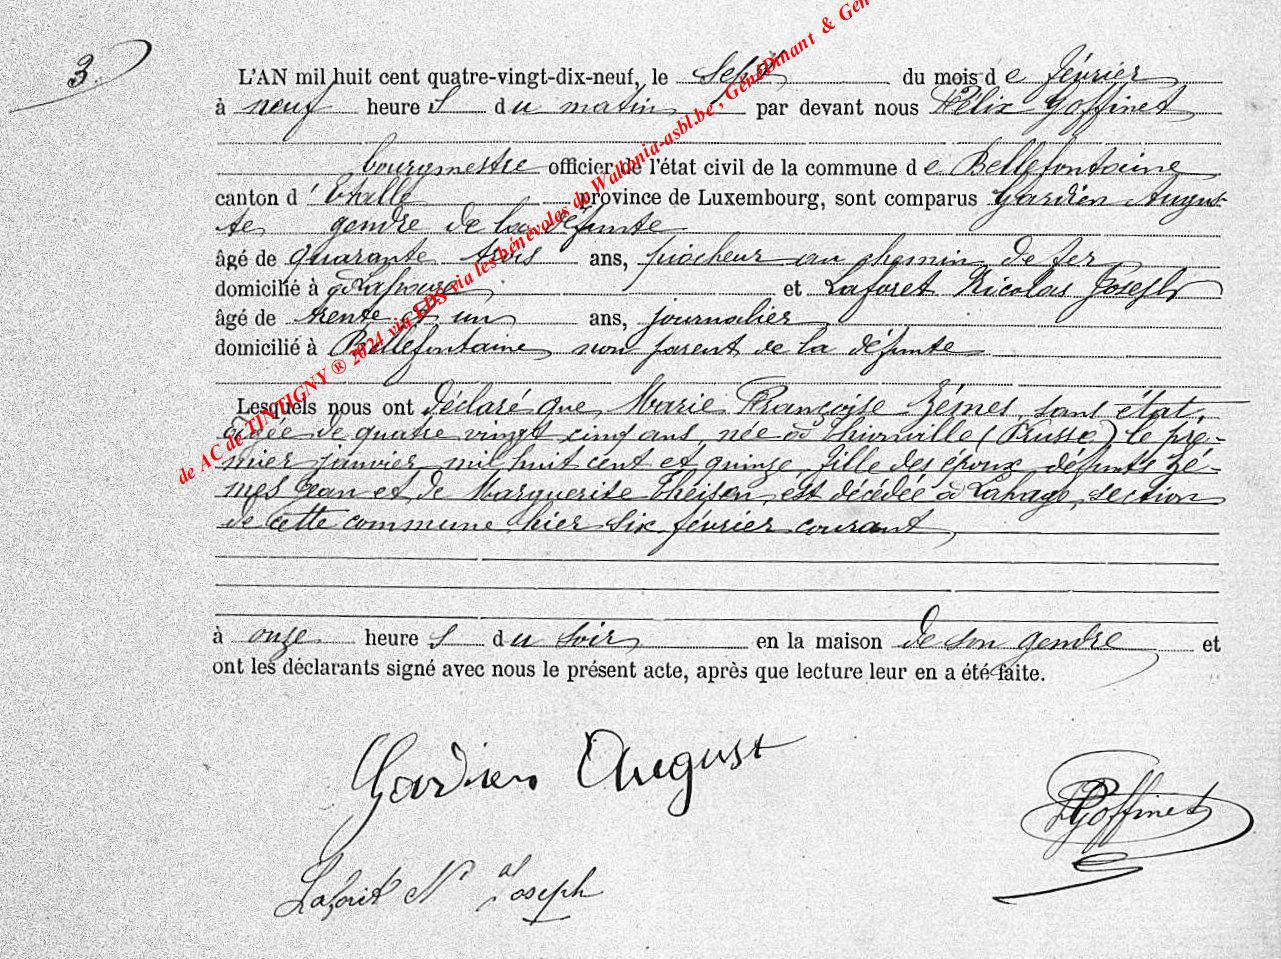 3.
L'AN mil huit cent quatre-vingt-dix-neuf, le Sept du mois de février
à neuf heures du matin par devant nous Félix Goffinet
bourgmestre officier de l'état civil de la commune de Bellefontaine
canton d'Etalle province de Luxembourg, sont comparus Gardien Augus-
te, gendre de la défunte
âgé de quarante trois ans, piocheur au chemin de fer
domicilié à et Laforet Nicolas Joseph
âgé de trente et un ans, journalier
domicilié à Bellefontaine non parent de la défunte
Lesquels nous ont Déclaré que Marie Françoise Zémes, sans état,
Agée de quatre vingt cinq ans, née à Thionville (Prusse) le pre-
mier janvier mil huit cent et quinze, fille des époux défunts Zé-
mes Jean et de Marguerite Theisen, est décédée à Lahage, section
de cette commune, hier six février courant,
à onze heures du soir en la maison de son gendre et
ont les déclarants signé avec nous le présent acte, après que lecture leur en a été faite.
Gardien August
FGoffinet
Laforêt N. Joseph
de AC de TINTIGNY ® 2024 via EDS via les bénévoles de Wallonia-asbl.be, GenéDinant & Gen